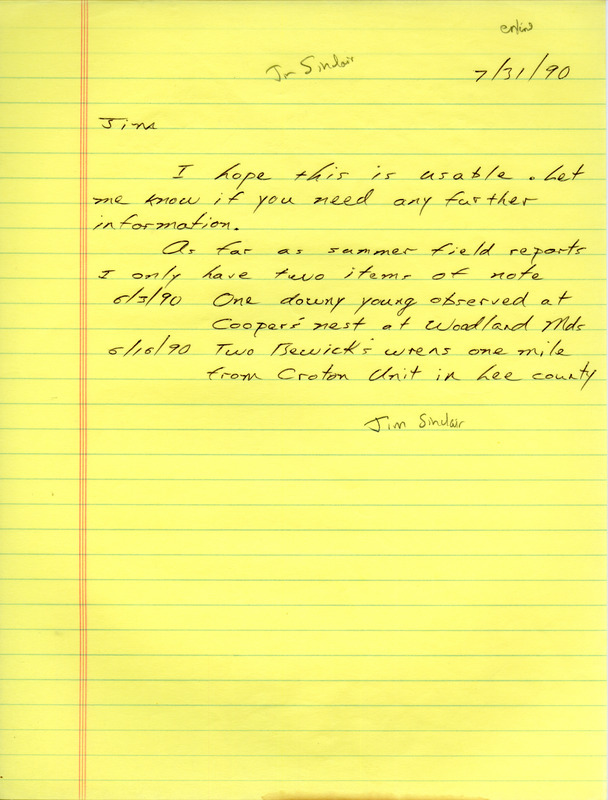 Jim Sinclair
7/31/90
Jim
I hope this is usable. Let
me know if you need any further
information.
As far as summer field reports
I only have two items of note
6/3/90 One downy young observed at
Coopers' nest at Woodland Mds
6/16/90 Two Bewick's wrens one mile
from Croton Unit in Lee county
Jim Sinclair